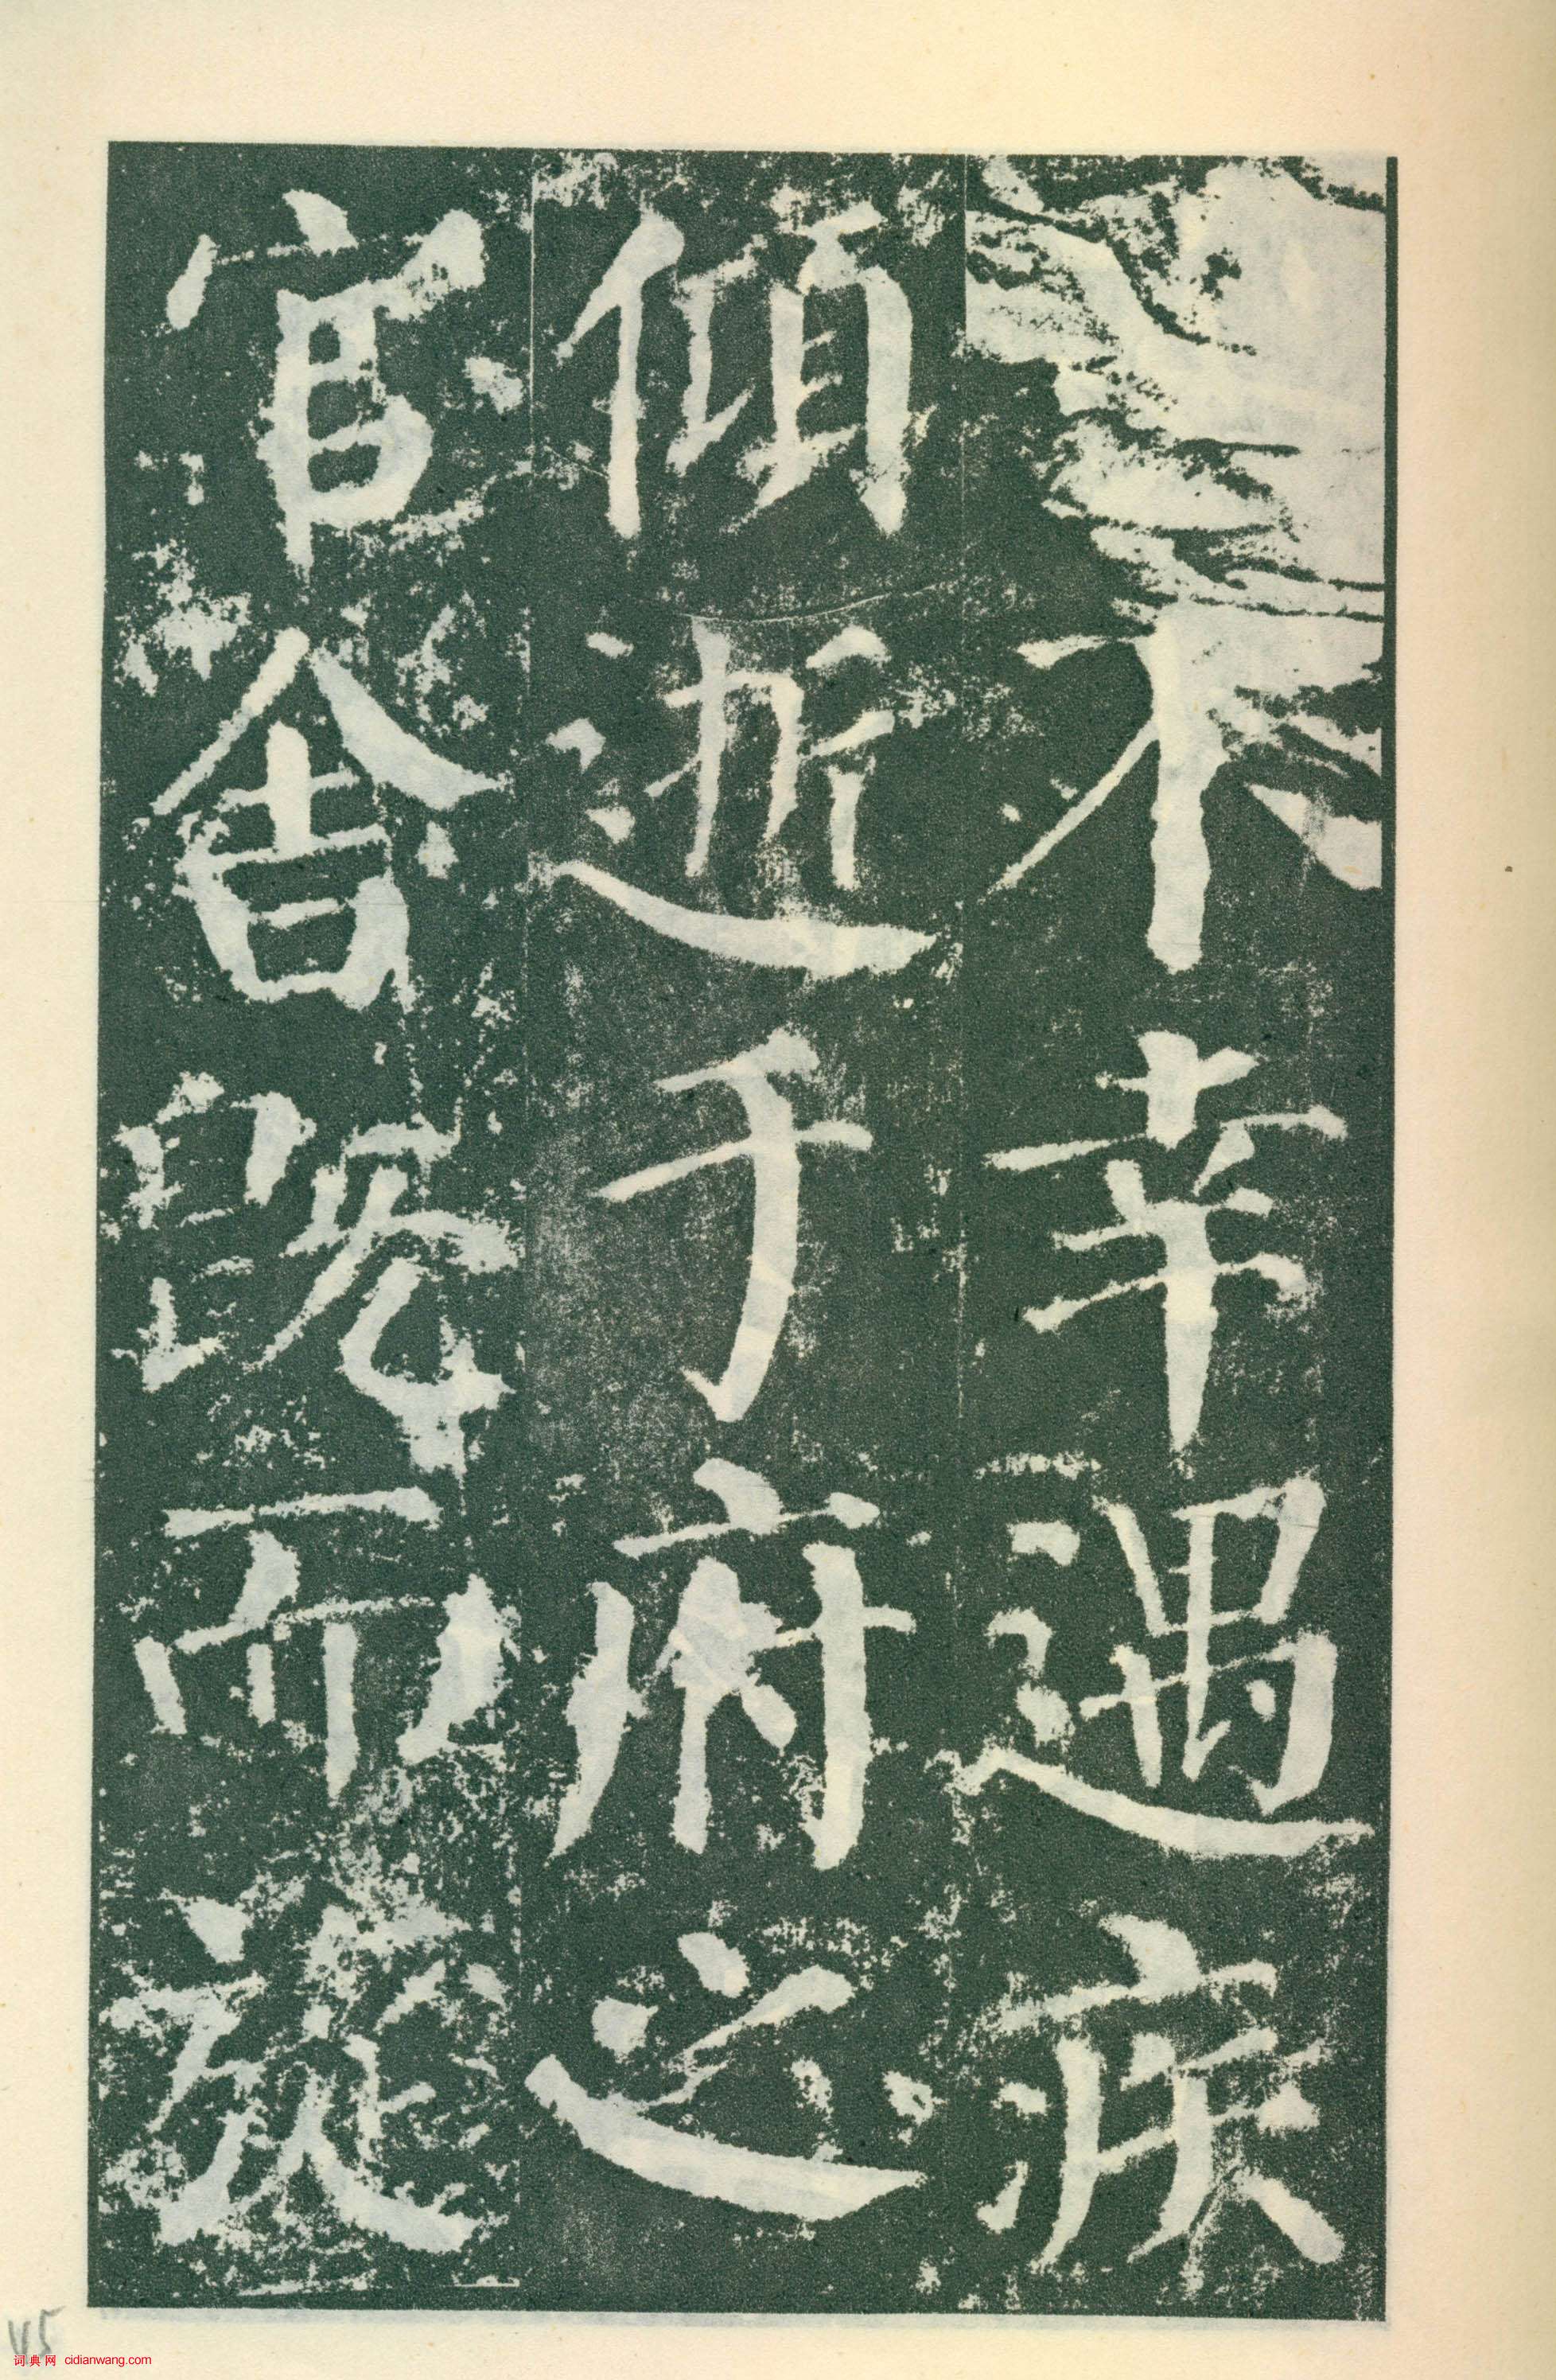 不幸遇疾
傾逝于府之
官舍既而旋
词典网 cidianwang.com